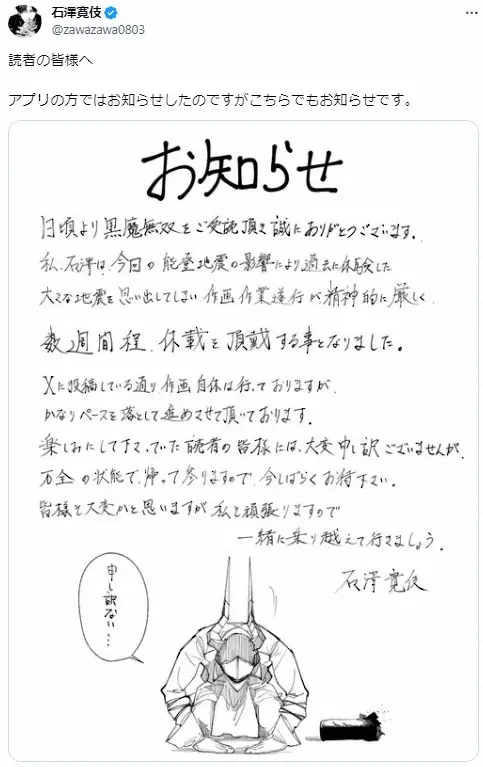 石澤寛伎
@zawazawa0803
読者の皆様へ
アプリの方ではお知らせしたのですがこちらでもお知らせです。
お知らせ
日頃より黒魔無双をご愛読頂き誠にありがとうございます。
私、石澤は、今回の能登地震の影響により過去に体験した
大きな地震を思い出してしまい作画作業遂行が精神的に厳しく、
数週間程、休載を頂戴する事となりました。
Xに投稿している通り作画自体は行っておりますが、
かなりペースを落として進めさせて頂いております。
楽しみにして下さっていた読者の皆様には、大変申し訳ございませんが、
万全の状態で、帰って参りますので、今しばらくお待ち下さい。
皆様も大変かと思いますが私も頑張りますので
一緒に乗り越えて行きましょう。
石澤寛伎
申し訳ない…